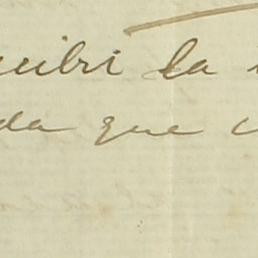 cibi la
da que